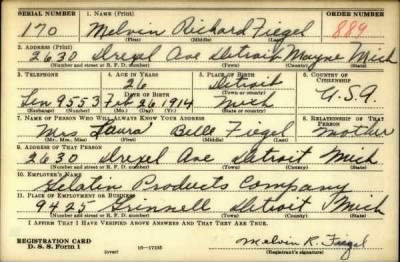 SERIAL NUMBER 1. NAME (Print) ORDER NUMBER
170 Melvin Richard Fiegel 889
(First) (Middle) (Last)
2. ADDRESS (Print)
2630 Drexel Ave Detroit Wayne Mich
(Number and street or R. F. D. number) (Town) (County) (State)
3. TELEPHONE 4. AGE IN YEARS 5. PLACE OF BIRTH 6. COUNTRY OF CITIZENSHIP
26 Detroit
DATE OF BIRTH (Town or county)
Len 9553 Feb 26 1914 Mich U.S.A.
(Exchange) (Number) (Mo.) (Day) (Yr.) (State or country)
7. NAME OF PERSON WHO WILL ALWAYS KNOW YOUR ADDRESS 8. RELATIONSHIP OF THAT PERSON
Mrs Laura Belle Fiegel Mother
(Mr., Mrs., Miss) (First) (Middle) (Last)
9. ADDRESS OF THAT PERSON
2630 Drexel Ave Detroit Mich
(Number and street or R. F. D. number) (Town) (County) (State)
10. EMPLOYER'S NAME
Gelatin Products Company
11. PLACE OF EMPLOYMENT OR BUSINESS
9425 Grinnell Detroit Mich
(Number and street or R. F. D. number) (Town) (County) (State)
I AFFIRM THAT I HAVE VERIFIED ABOVE ANSWERS AND THAT THEY ARE TRUE.
REGISTRATION CARD
D. S. S. Form 1 16—17105 Melvin R. Fiegel
(over) (Registrant's signature)